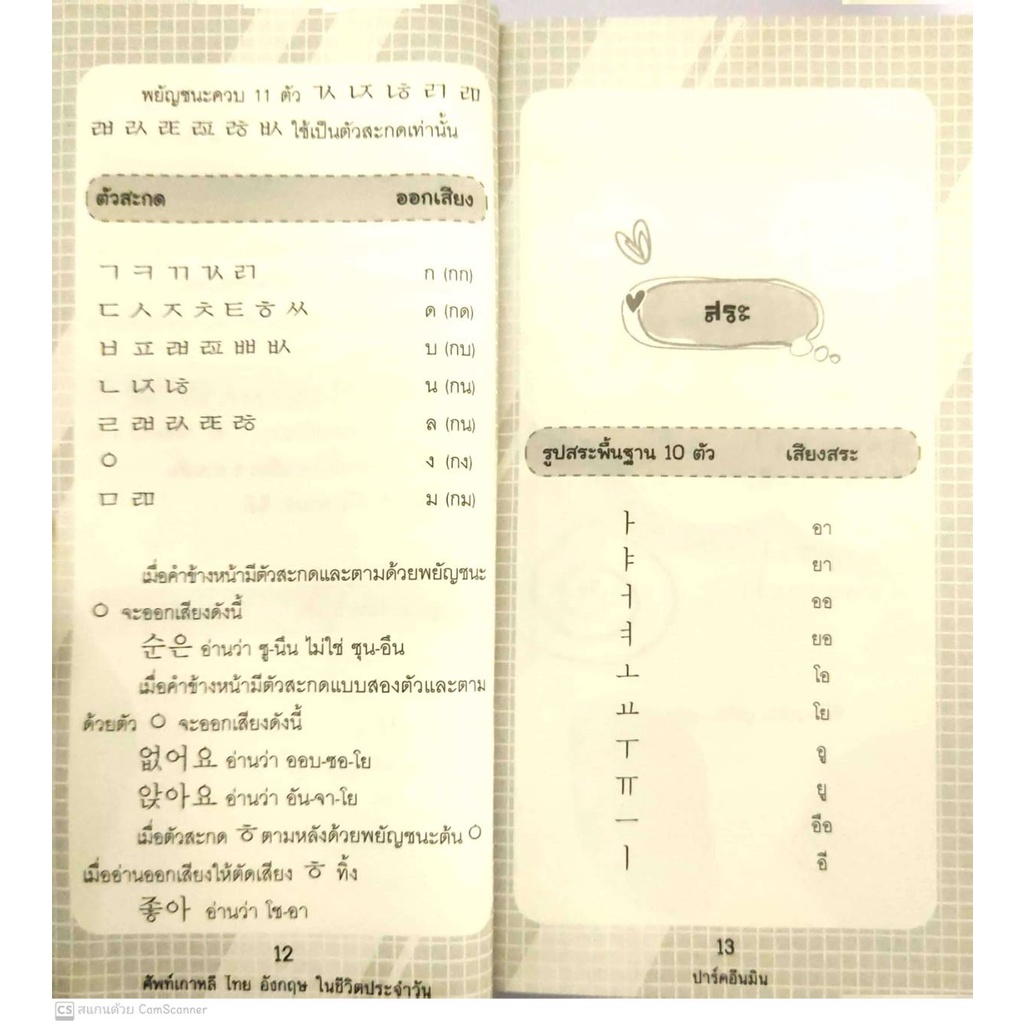 พยัญชนะควบ 11 ตัว ㄳ ㄵ ㄶ ㄺ ㄻ
ㄼ ㄽ ㄾ ㄿ ㅀ ㅄ ใช้เป็นตัวสะกดเท่านั้น
ตัวสะกด ออกเสียง
ㄱ ㅋ ㄲ ㄳ ㄺ ก (กก)
ㄷ ㅅ ㅈ ㅊ ㅌ ㅎ ㅆ ด (กด)
ㅂ ㅍ ㄼ ㄿ ㅃ ㅄ บ (กบ)
ㄴ ㄵ ㄶ น (กน)
ㄹ ㄼ ㄽ ㄾ ㅀ ล (กน)
ㅇ ง (กง)
ㅁ ㄻ ม (กม)
เมื่อคำข้างหน้ามีตัวสะกดและตามด้วยพยัญชนะ
ㅇ จะออกเสียงดังนี้
순은 อ่านว่า ซู-นึน ไม่ใช่ ซุน-อึน
เมื่อคำข้างหน้ามีตัวสะกดแบบสองตัวและตาม
ด้วยตัว ㅇ จะออกเสียงดังนี้
없어요 อ่านว่า ออบ-ซอ-โย
앉아요 อ่านว่า อัน-จา-โย
เมื่อตัวสะกด ㅎ ตามหลังด้วยพยัญชนะต้น ㅇ
เมื่ออ่านออกเสียงให้ตัดเสียง ㅎ ทิ้ง
좋아 อ่านว่า โช-อา
12
ศัพท์เกาหลี ไทย อังกฤษ ในชีวิตประจำวัน
สระ
รูปสระพื้นฐาน 10 ตัว เสียงสระ
ㅏ อา
ㅑ ยา
ㅓ ออ
ㅕ ยอ
ㅗ โอ
ㅛ โย
ㅜ อู
ㅠ ยู
ㅡ อือ
ㅣ อี
13
ปาร์คอึนมิน
CS สแกนด้วย CamScanner